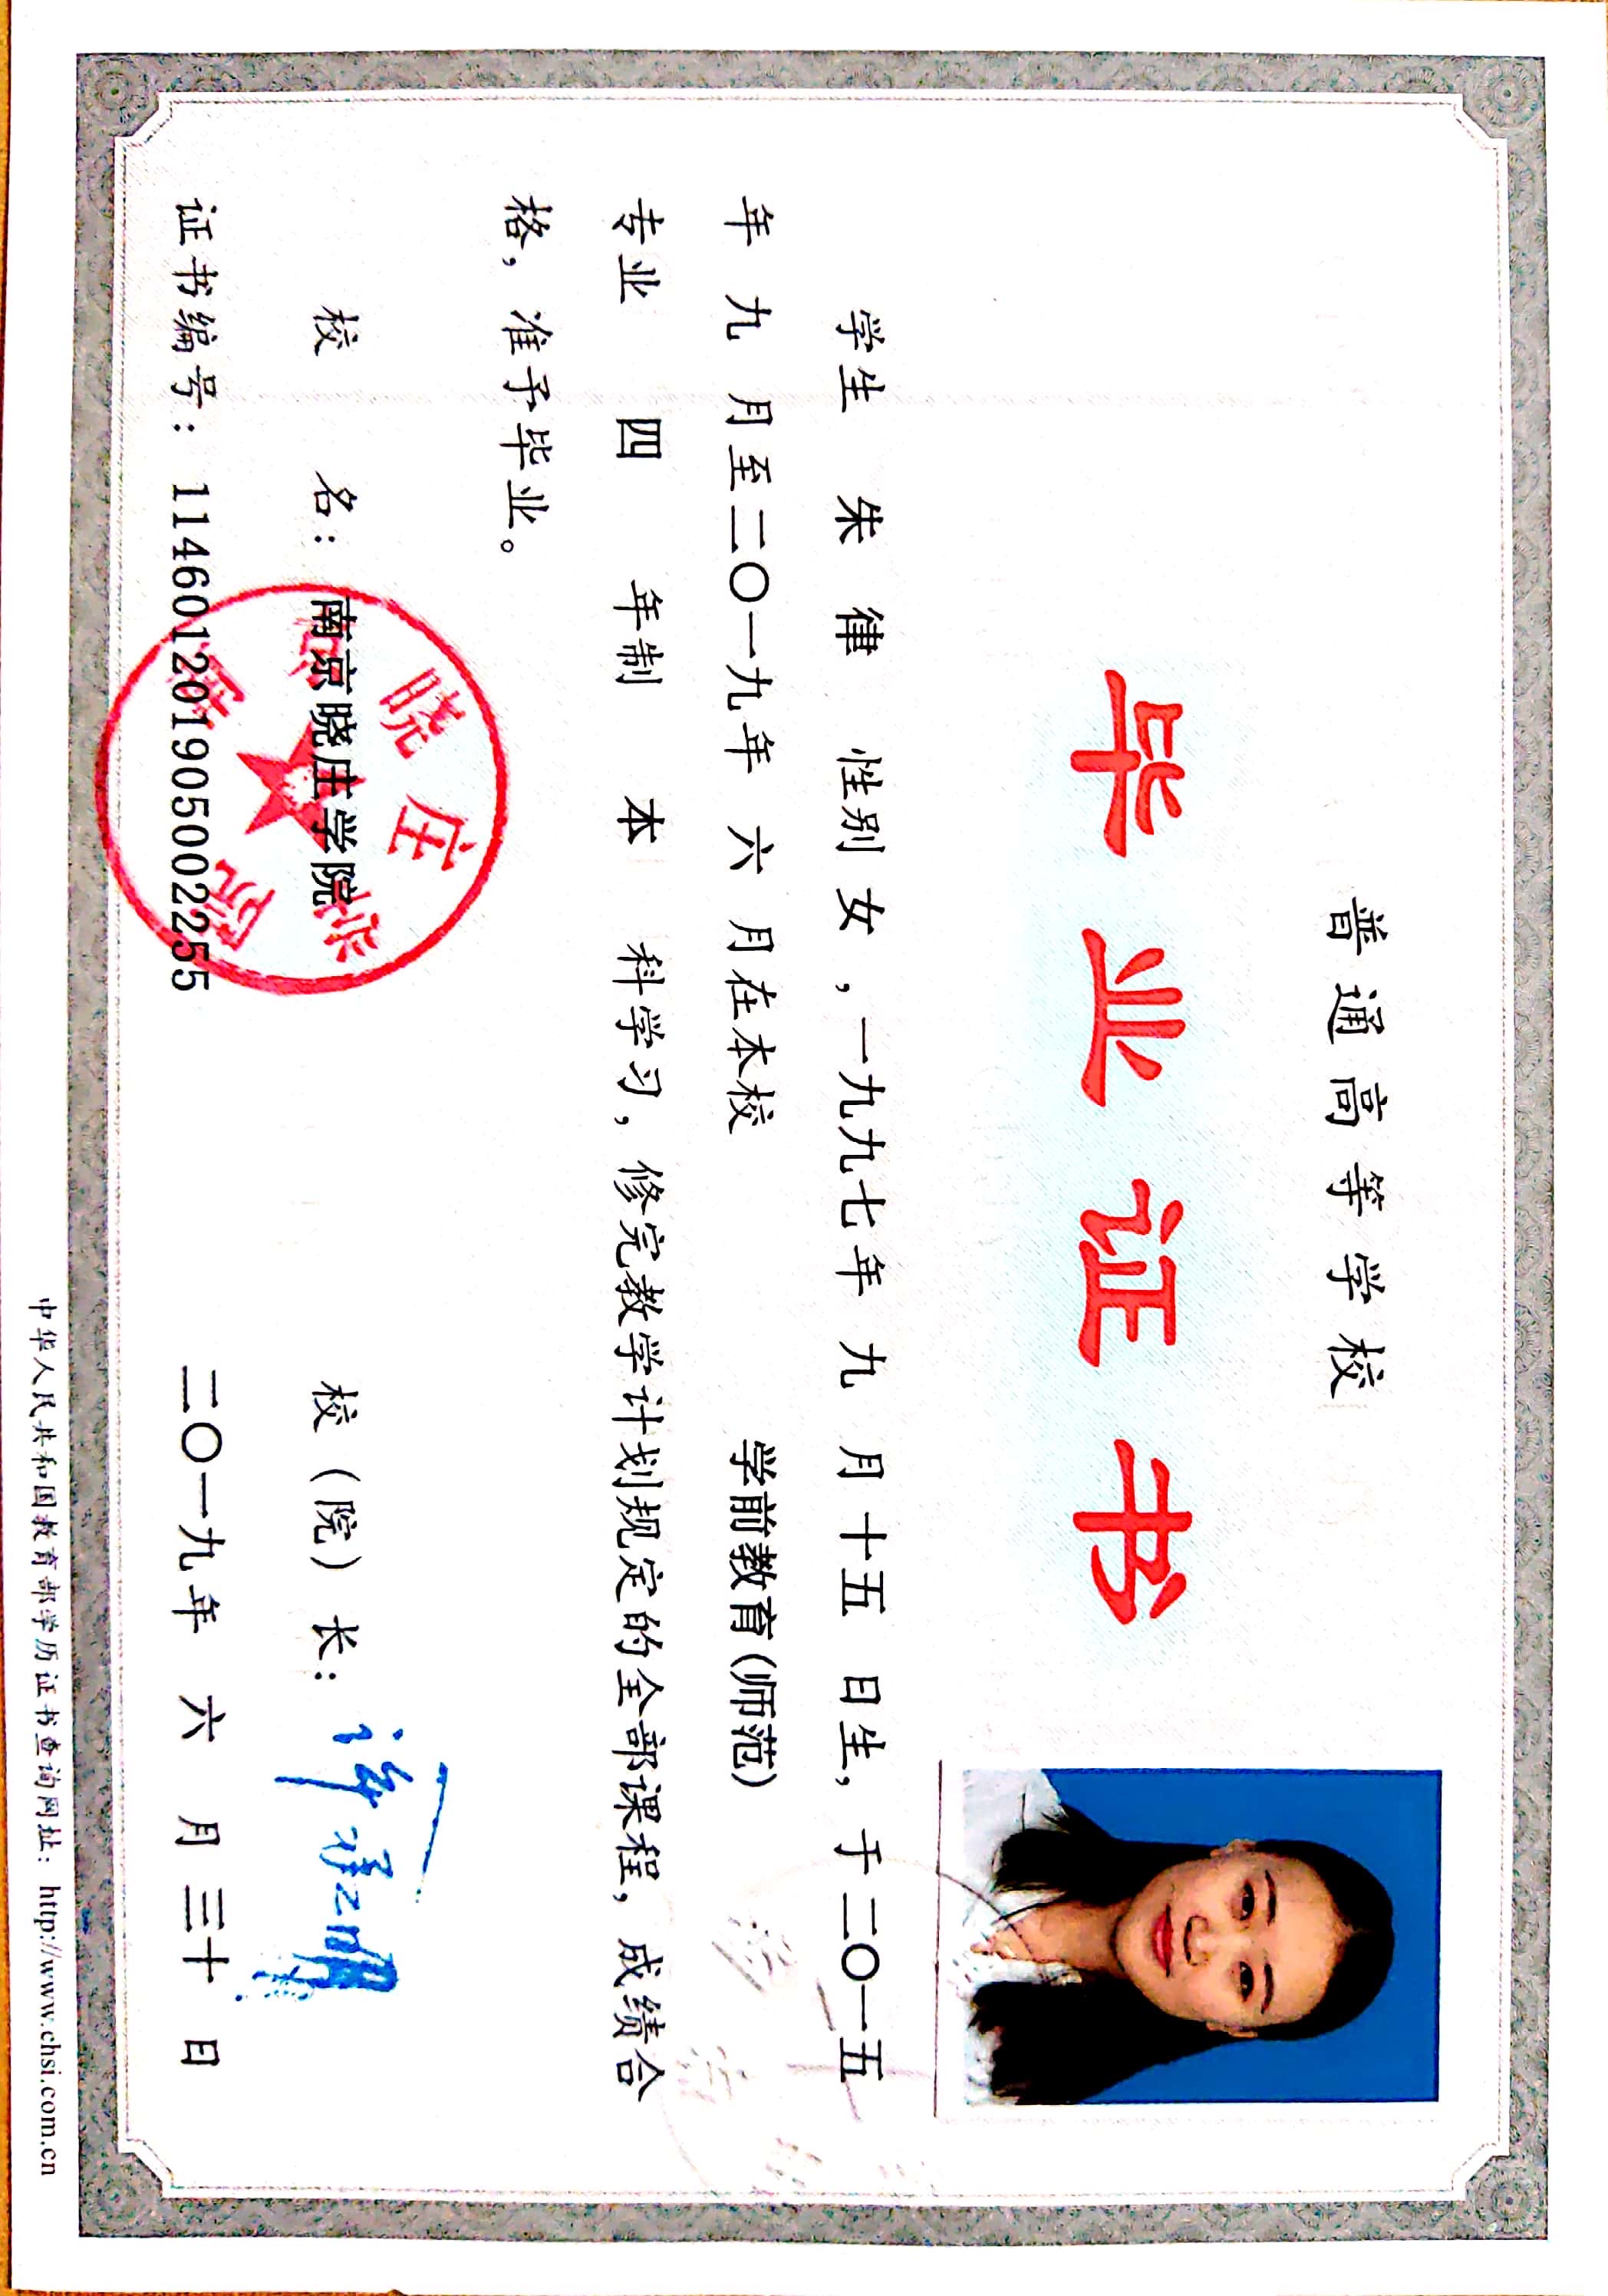 普通高等学校
毕业证书
学生 朱律 性别 女 ，一九九七年 九 月 十五 日生，于二〇一五
年 九 月至二〇一九年 六 月在本校 学前教育(师范)
专业 四 年制 本 科学习，修完教学计划规定的全部课程，成绩合
格，准予毕业。
校 名： 南京晓庄学院 校（院）长：
南京晓庄学院
证书编号：114601201905002255 二〇一九年 六 月 三十 日
中华人民共和国教育部学历证书查询网址：http://www.chsi.com.cn